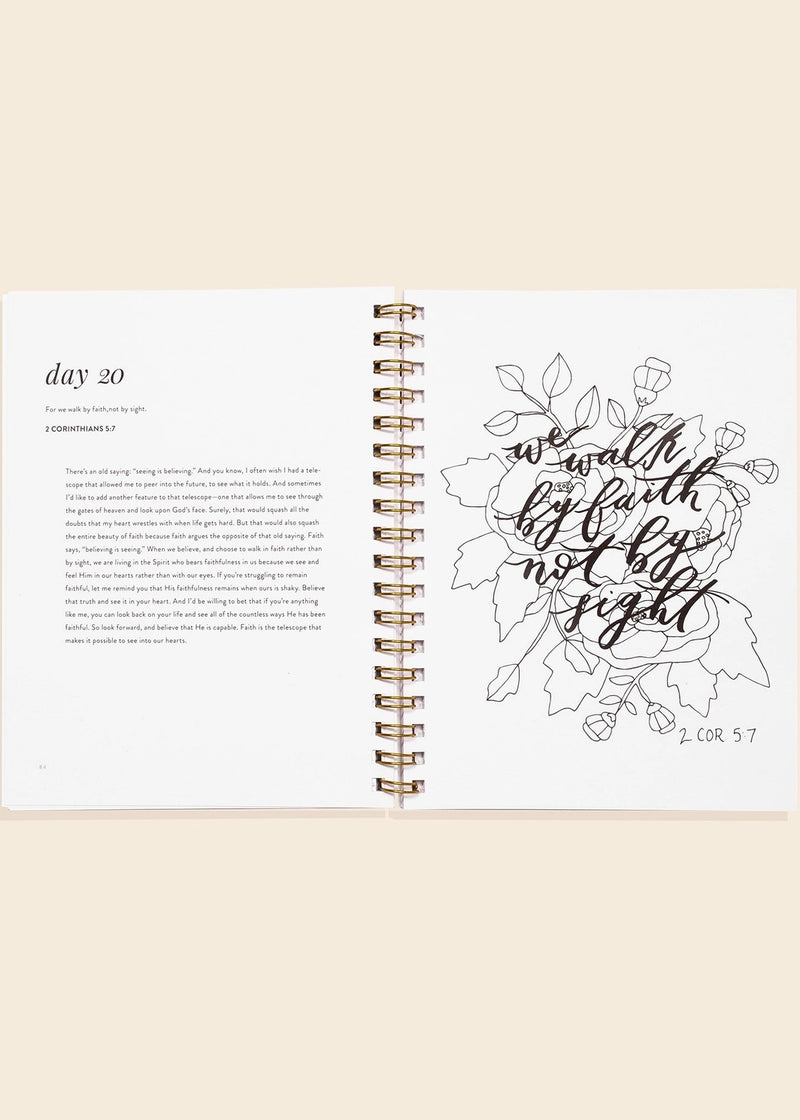 day 20
For we walk by faith,not by sight.
2 CORINTHIANS 5:7
There's an old saying: "seeing is believing." And you know, I often wish I had a tele-
scope that allowed me to peer into the future, to see what it holds. And sometimes
I'd like to add another feature to that telescope—one that allows me to see through
the gates of heaven and look upon God's face. Surely, that would squash all the
doubts that my heart wrestles with when life gets hard. But that would also squash
the entire beauty of faith because faith argues the opposite of that old saying. Faith
says, "believing is seeing." When we believe, and choose to walk in faith rather than
by sight, we are living in the Spirit who bears faithfulness in us because we see and
feel Him in our hearts rather than with our eyes. If you're struggling to remain
faithful, let me remind you that His faithfulness remains when ours is shaky. Believe
that truth and see it in your heart. And I'd be willing to bet that if you're anything
like me, you can look back on your life and see all of the countless ways He has been
faithful. So look forward, and believe that He is capable. Faith is the telescope that
makes it possible to see into our hearts.
84
we walk
by faith
not by
sight
2 COR 5:7